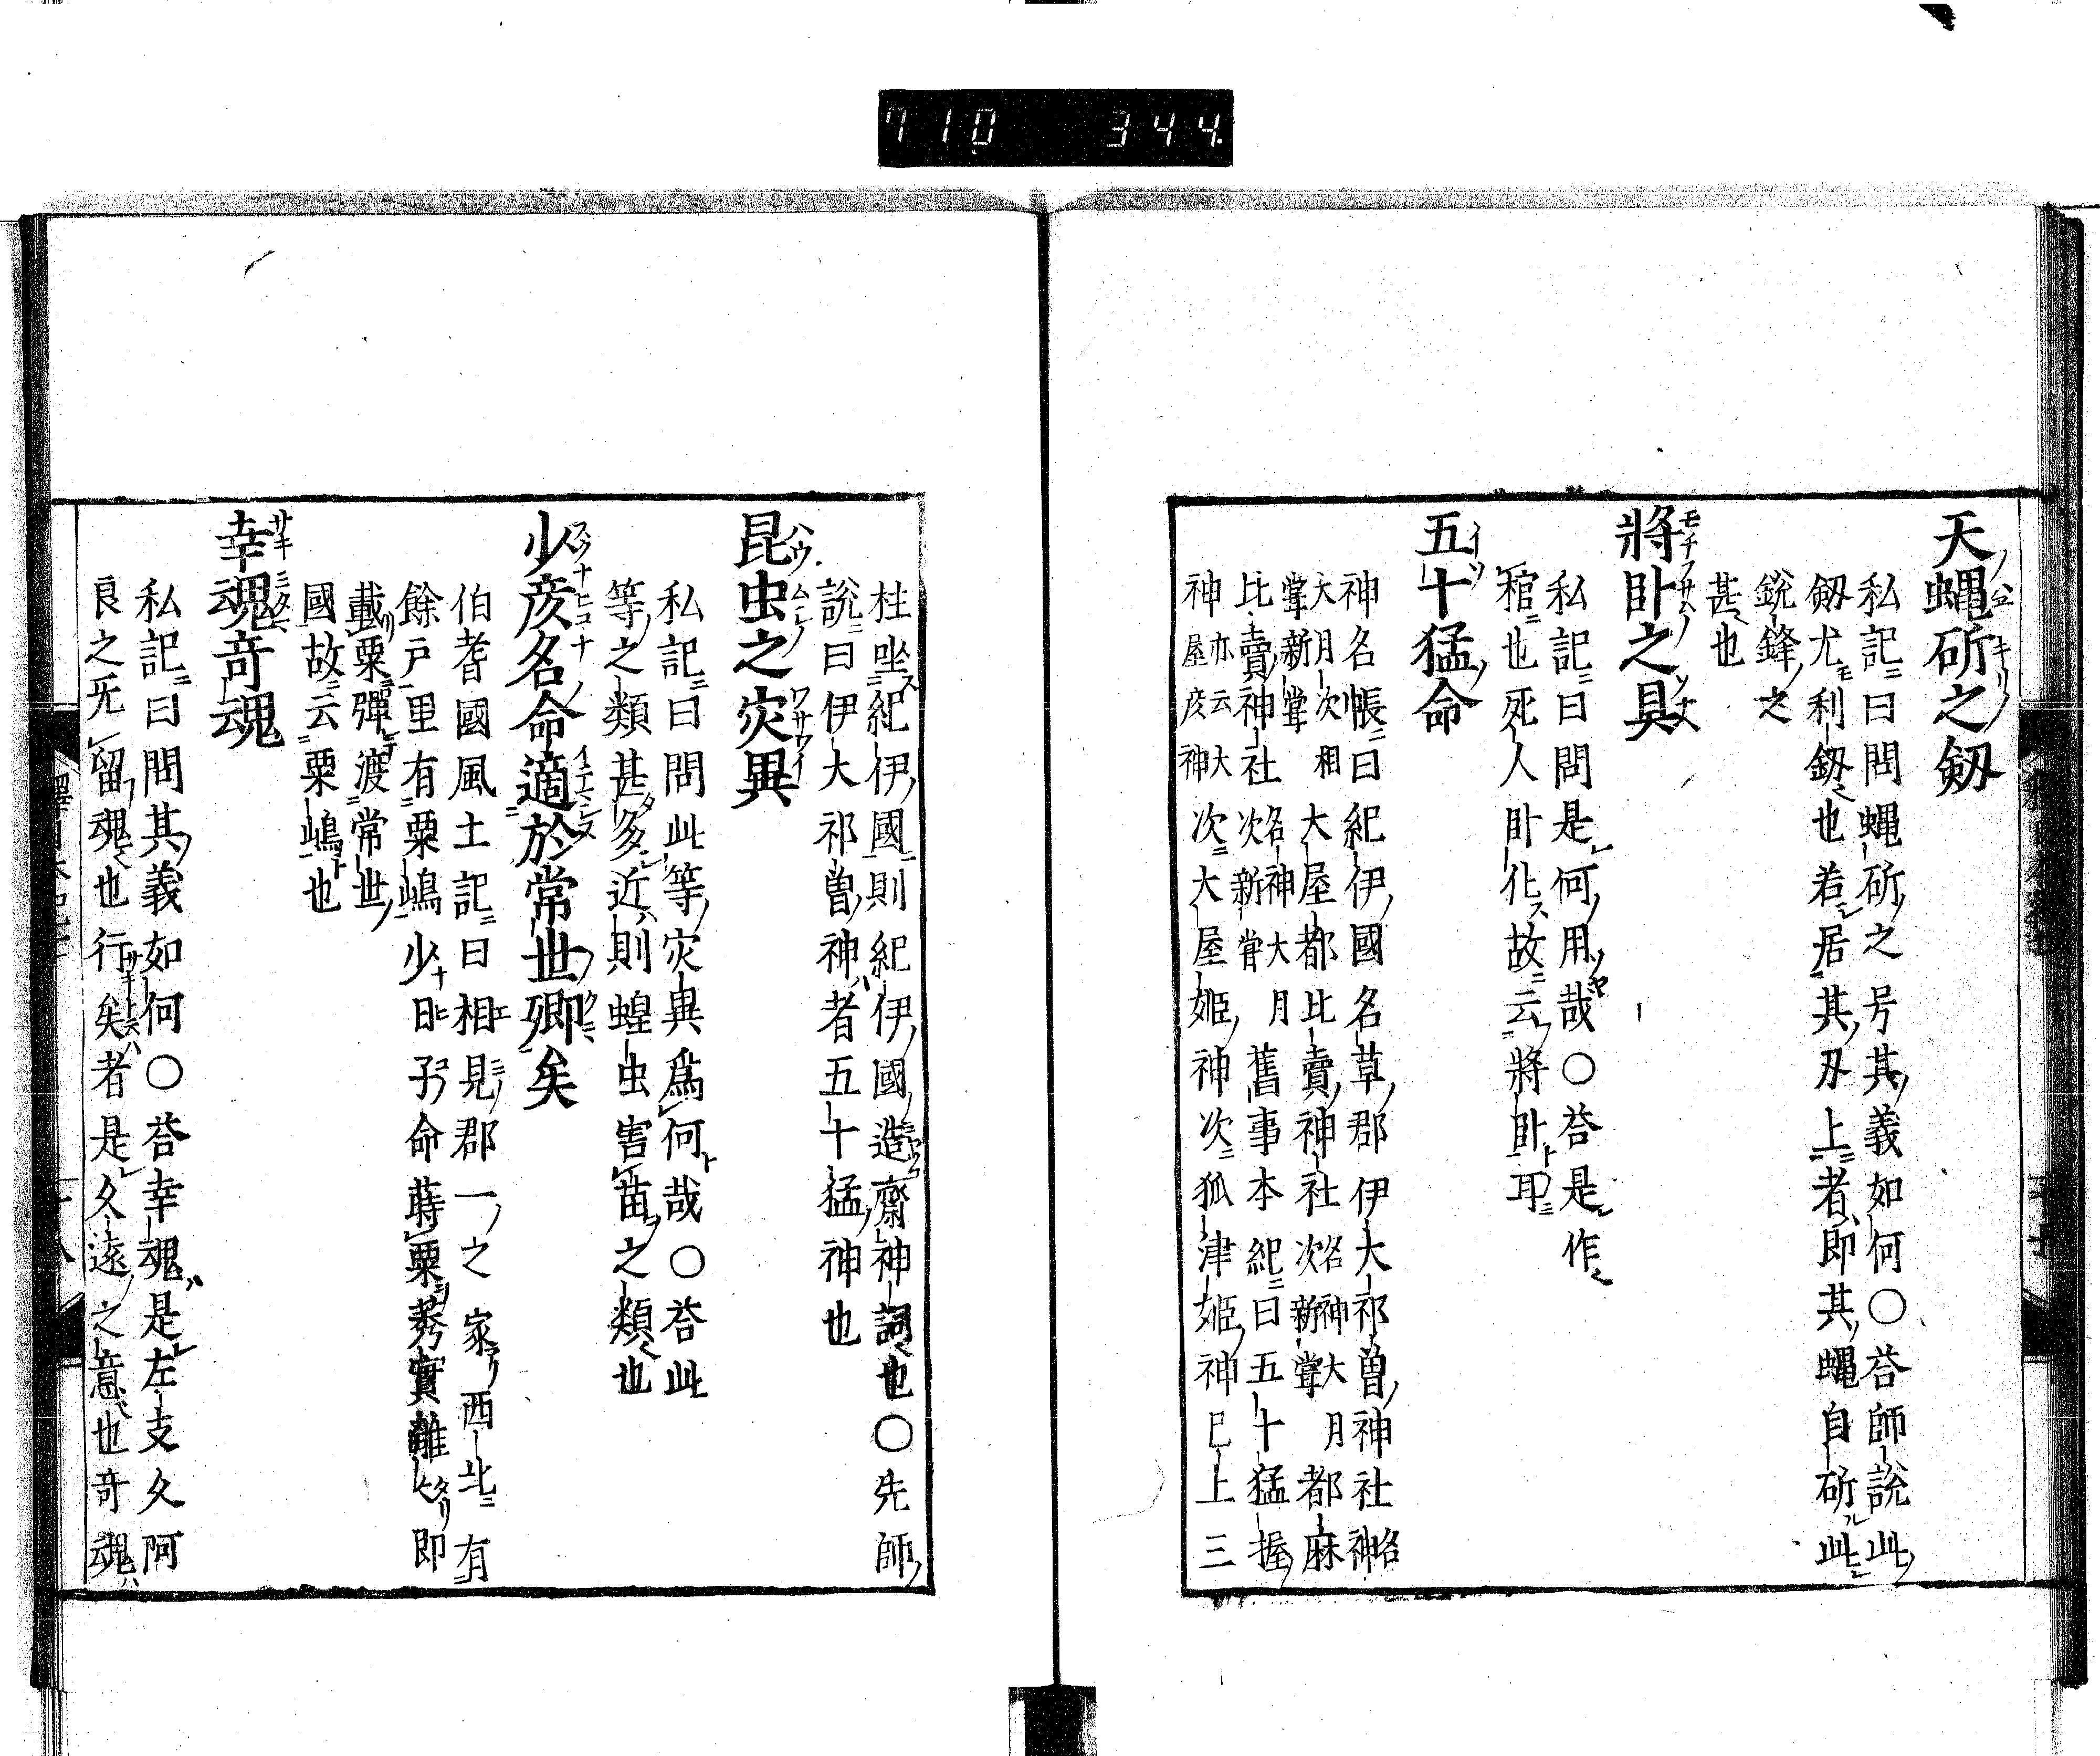 710 344
天蝿斫之剱
私記曰問蝿斫之号其義如何○荅師說此
剱尤利剱也若居其刃上者即其蝿自斫此
銳鋒之
甚也
將卧之具
私記曰問是何用哉○荅是作
棺也死人卧化故云將卧耳
五十猛命
神名帳曰紀伊國名草郡伊大祁曽神社名神
大月次相甞新甞大屋都比賣神社名神大月次新甞都麻
比賣神社名神大月次新甞舊事本紀曰五十猛握
神亦云大屋彦神次大屋姫神次狐津姫神已上三
柱坐紀伊國則紀伊國造齋神祠也○先師
說曰伊大祁曽神者五十猛神也
昆虫之灾異
私記曰問此等灾異爲何哉○荅此
等之類甚多近則蝗虫害苗之類也
少彦名命適於常世郷矣
伯耆國風土記曰相見郡一之家西北有
餘戸里有粟嶋少日子命蒔粟莠實離々即
載粟彈渡常世
國故云粟嶋也
幸魂奇魂
私記曰問其義如何○荅幸魂是左支久阿
良之旡留魂也行矣者是久遠之意也奇魂